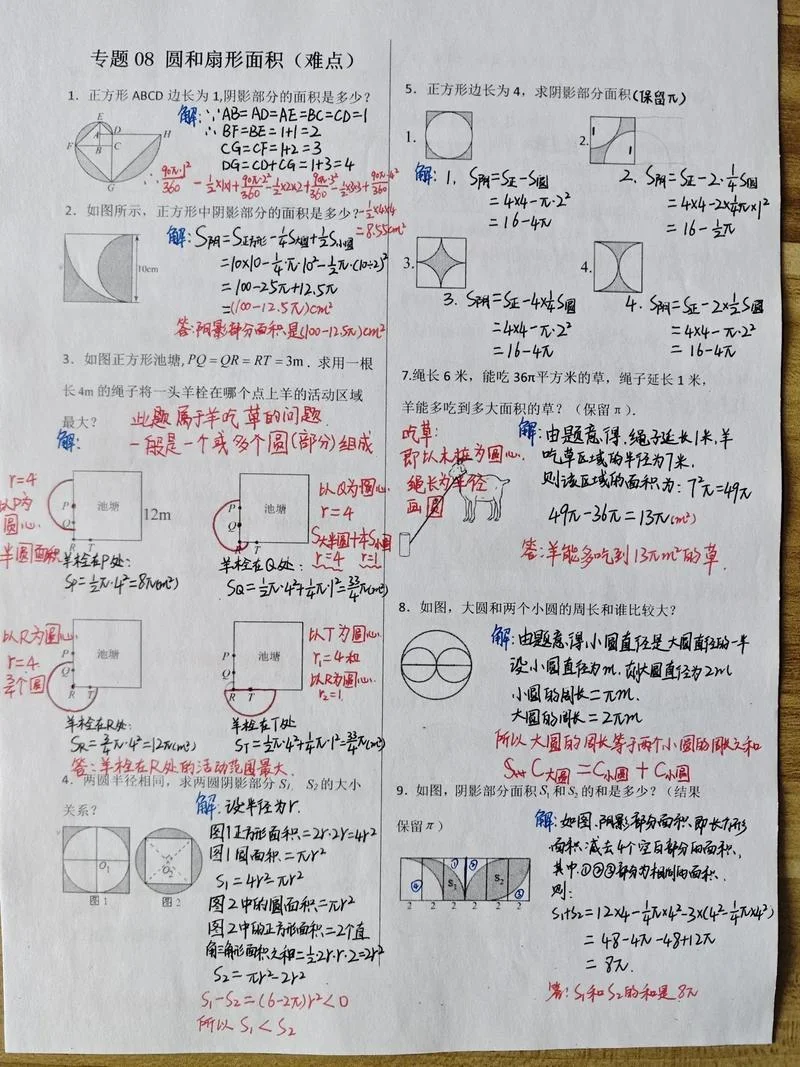 专题 08 圆和扇形面积（难点）
1. 正方形 ABCD 边长为 1,阴影部分的面积是多少?
解: ∵AB=AD=AE=BC=CD=1
∴BF=BE=1+1=2
CG=CF=1+2=3
DG=CD+CG=1+3=4
E
A D H
F B C
G
∴ 90π·1²/360 - ½×1×1 + 90π·2²/360 - ½×2×2 + 90π·3²/360 - ½×3×3 + 90π·4²/360
-½×4×4
=8.55cm²
2. 如图所示，正方形中阴影部分的面积是多少?
10cm
解: S阴=S正方形-¼S大圆+½S小圆
=10×10-¼·π·10²-½π·(10÷2)²
=100-25π+12.5π
=(100-12.5π)cm²
答:阴影部分面积是(100-12.5π)cm²
3. 如图正方形池塘, PQ=QR=RT=3m . 求用一根
长 4m 的绳子将一头羊栓在哪个点上羊的活动区域
最大?
此题属于羊吃草的问题.
解:
一般是一个或多个圆(部分)组成
r=4
以P为
圆心.
半圆面积
P
Q
R T
池塘
12m
羊栓在P处:
SP=½π·4²=8π(m²)
P
Q
R T
池塘
以Q为圆心.
r=4
S大半圆+¼S小圆
r=4 r=1
羊栓在Q处:
SQ=½π·4²+¼π·1²=33/4π(m²)
以R为圆心.
r=4
¾个圆
P
Q
R T
池塘
羊栓在R处:
SR=¾π·4²=12π(m²)
P
Q
R T
池塘
以T为圆心.
r₁=4和
以R为圆心.
r₂=1.
羊栓在T处
ST=½π·4²+¼π·1²=33/4π(m²)
答:羊栓在R处的活动范围最大.
4. 两圆半径相同，求两圆阴影部分 S₁、S₂ 的大小
关系?
O₁
图1
O₂
图2
解:设半径为r.
图1正方形面积=2r·2r=4r²
图1圆面积=πr²
S₁=4r²-πr²
图2中的圆面积=πr²
图2中的正方形面积=2个直
角三角形面积之和=½·2r·r·2=2r²
S₂=πr²-2r²
S₁-S₂=(6-2π)r²<0
所以 S₁<S₂
5. 正方形边长为 4，求阴影部分面积(保留π)
1.
2.
1
1
解: 1. S阴=S正-S圆
=4×4-π·2²
=16-4π
2. S阴=S正-2·¼S圆
=4×4-2×¼π×1²
=16-½π
3.
4.
3. S阴=S正-4×¼S圆
=4×4-π·2²
=16-4π
4. S阴=S正-2×½S圆
=4×4-π·2²
=16-4π
7.绳长 6 米，能吃 36π平方米的草，绳子延长 1 米，
羊能多吃到多大面积的草?（保留 π）.
吃草:
即以木桩为圆心.
绳长为半径
画圆
解:由题意得.绳子延长1米,羊
吃草区域的半径为7米.
则该区域的面积为:7²π=49π
49π-36π=13π(m²)
答:羊能多吃到13πm²的草.
8. 如图，大圆和两个小圆的周长和谁比较大?
解:由题意得小圆直径是大圆直径的一半
设小圆直径为m.则大圆直径为2m
小圆的周长=πm.
大圆的周长=2πm
所以大圆的周长等于两个小圆的周长之和
C大圆=C小圆+C小圆
9. 如图，阴影部分面积 S₁ 和 S₂ 的和是多少?（结果
保留 π）
④ S₁ ① ② S₂ ③
2 2 2 2 2 2
解:如图.阴影部分面积.即长方形
面积.减去4个空白部分的面积,
其中.①②③部分为相同的面积.
则:
S₁+S₂=12×4-¼π×4²-3×(4²-¼π×4²)
=48-4π-48+12π
=8π.
答:S₁和S₂的和是8π